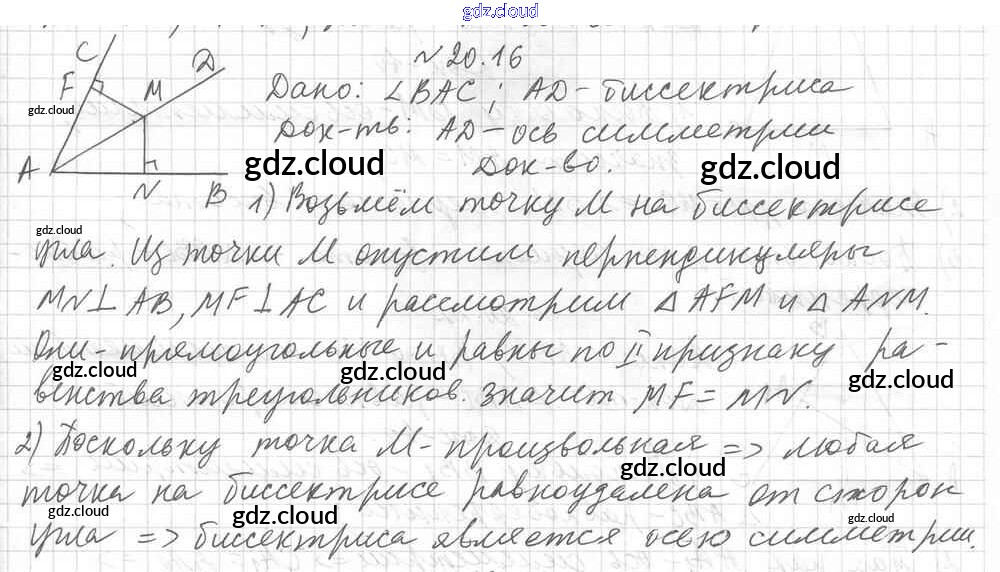 gdz.cloud
№ 20.16
C
D
F
M
Дано: ∠BAC; AD - биссектриса
gdz.cloud
Док-ть: AD - ось симметрии
gdz.cloud
gdz.cloud
A
Док-во.
N
B
1) Возьмём точку M на биссектрисе
gdz.cloud
угла. Из точки M опустим перпендикуляры
MN⊥AB, MF⊥AC и рассмотрим △AFM и △ANM.
Они - прямоугольные и равны по II признаку ра-
gdz.cloud
gdz.cloud
gdz.cloud
венства треугольников. Значит MF = MN.
2) Поскольку точка M - произвольная => любая
gdz.cloud
точка на биссектрисе равноудалена от сторон
gdz.cloud
gdz.cloud
gdz.cloud
угла => биссектриса является осью симметрии.